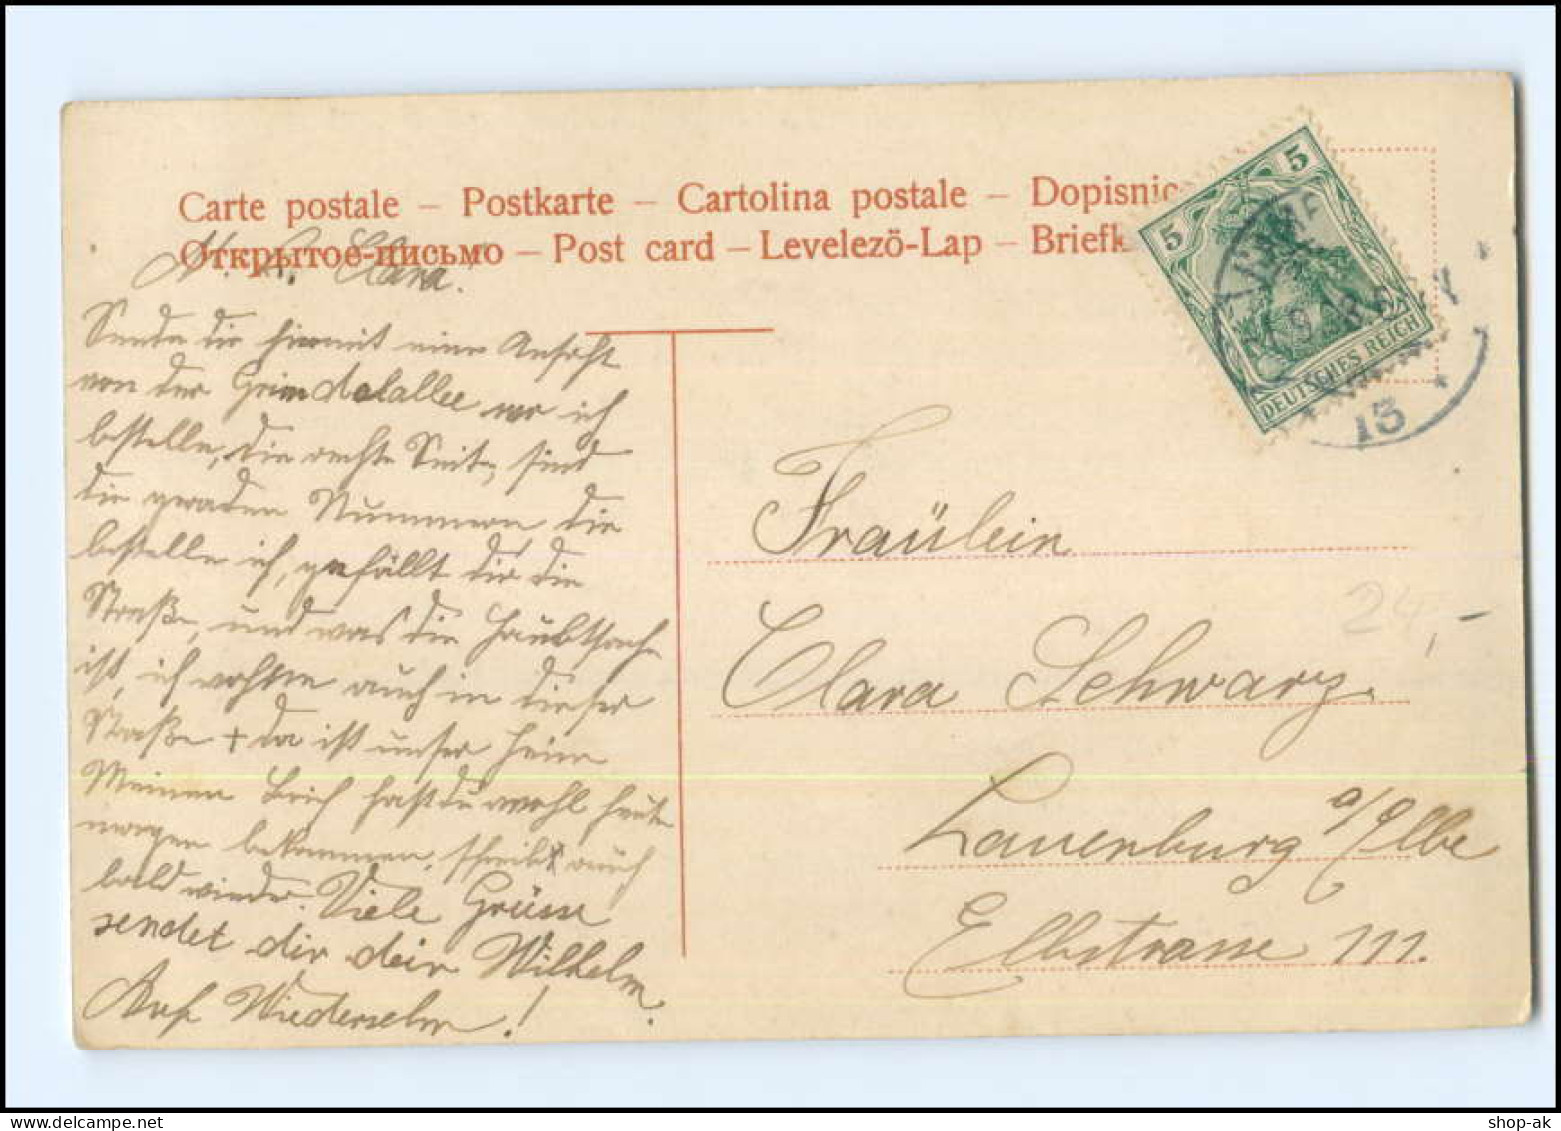 Carte postale – Postkarte – Cartolina postale – Dopisnic
Открытое-письмо – Post card – Levelező-Lap – Briefk
M. l. Clara!
Sende dir hiermit eine Ansicht
von der Grindelallee wo ich
bestelle, die rechte Seite, sind
die geraden Nummern die
bestelle ich, gefällt dir die
Straße, und was die Haubtsache
ist, ich wohne auch in dieser
Straße + da ist unser Heim
Meinen Brief hast du wohl heute
morgen bekommen, schreib auch
bald wieder. Viele Grüsse
sendet dir dein Wilhelm.
Auf Wiedersehn!
5
5
DEUTSCHES REICH
13
Fräulein
Clara Schwarz.
Lauenburg a/Elbe
Elbstrasse 111.
24,–
shop-ak